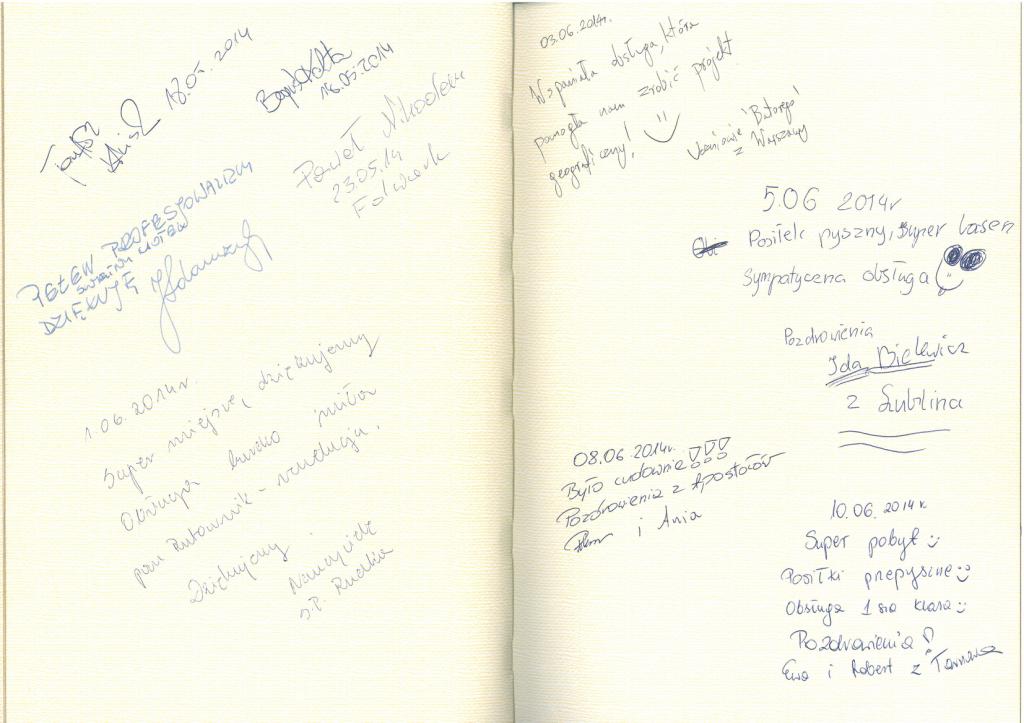 18.05.2014
18.05.2014
Paweł Nikodem
23.05.14
Folwark
PEŁEN PROFESJONALIZM
DZIĘKUJĘ
1.06.2014r.
Super miejsce, dziękujemy
Obsługa bardzo miła
pan Ratownik - rewelacja.
Dziękujemy
Nauczyciele
S.P. Rudka
03.06.2014r.
Wspaniała obsługa, która
pomogła nam zrobić projekt
geograficzny!
Uczniowie 'Batorego'
z Warszawy
5.06 2014r
Posiłek pyszny, super basen
Sympatyczna obsługa
Pozdrowienia
Ida Bielewicz
z Lublina
08.06.2014r.
Było cudownie!!!
Pozdrowienia z Apostołów
i Ania
10.06.2014r.
Super pobyt :)
Posiłki przepyszne :)
Obsługa 1-sza klasa :)
Pozdrowienia!
Ewa i Robert z Tarnowa